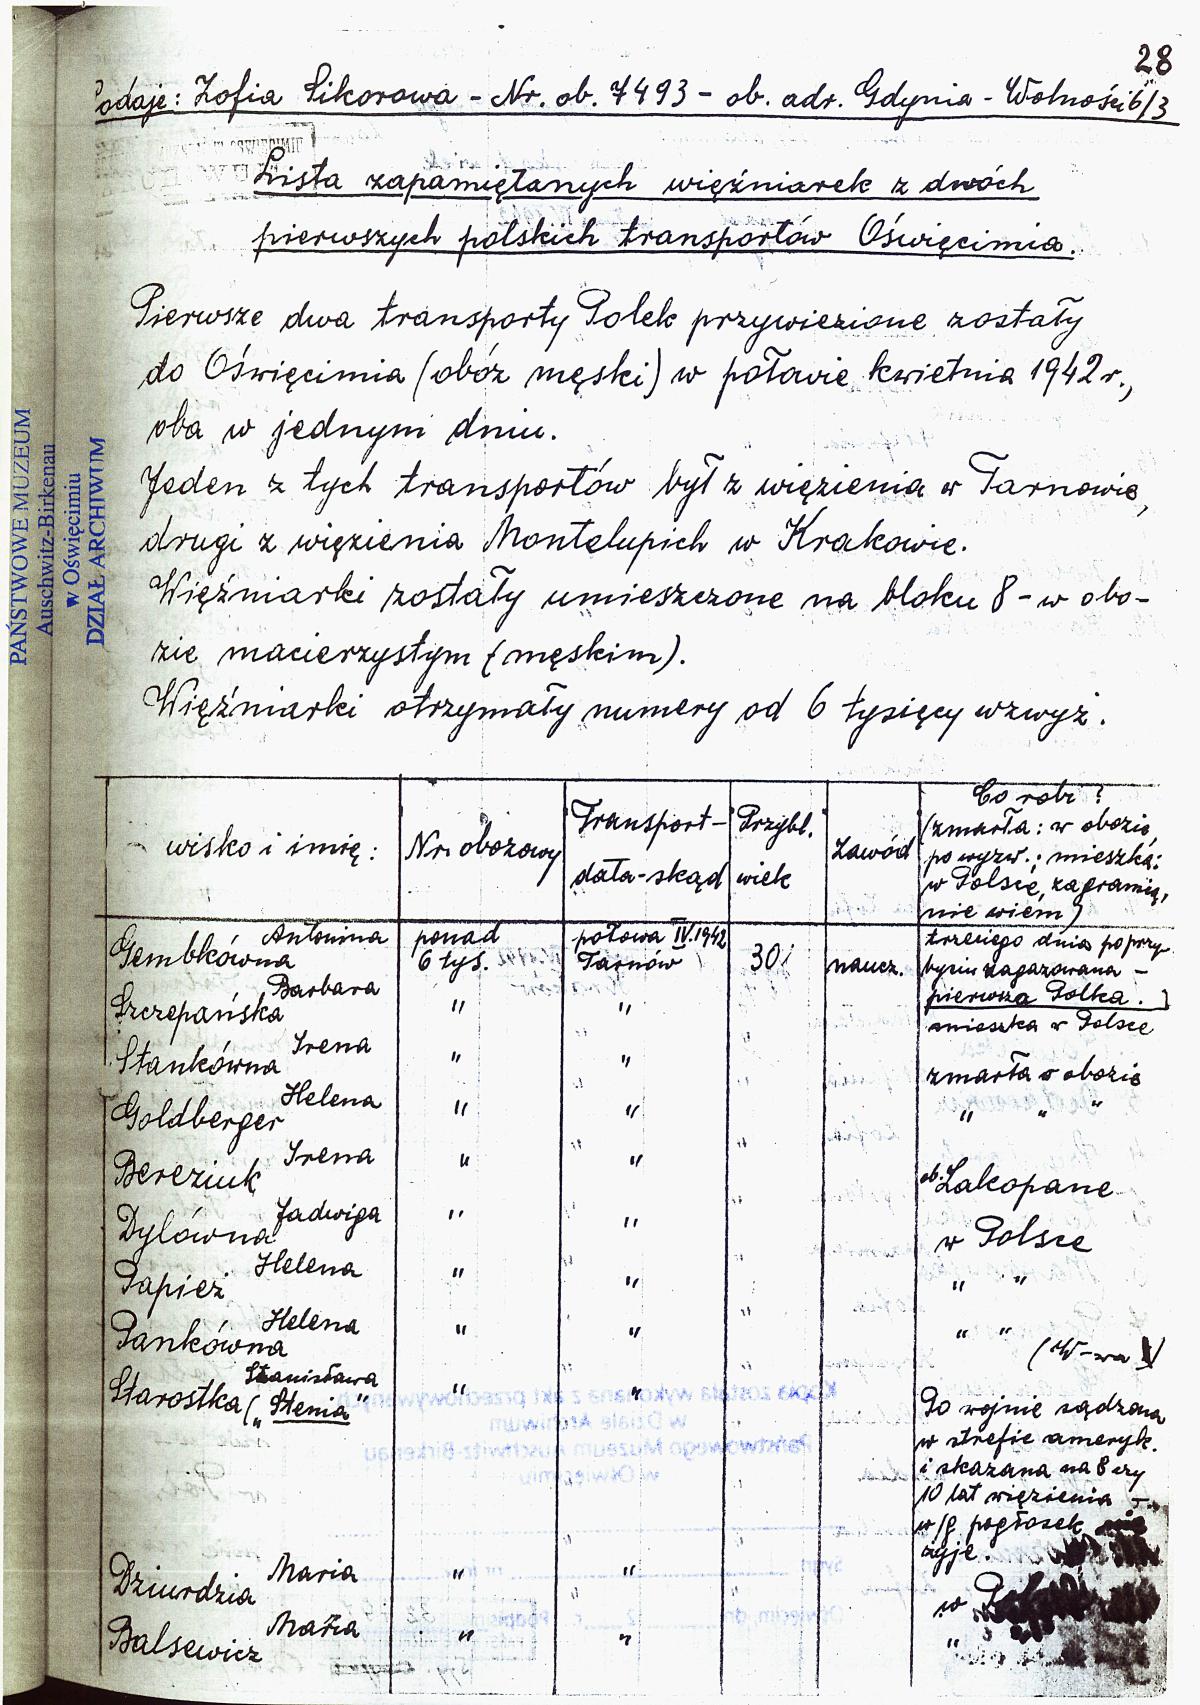 28
Podaje: Zofia Sikorowa - Nr. ob. 7493 - ob. adr. Gdynia - Wolności 6/3
Lista zapamiętanych więźniarek z dwóch
pierwszych polskich transportów Oświęcimia.
Pierwsze dwa transporty Polek przywiezione zostały
do Oświęcimia (obóz męski) w połowie kwietnia 1942 r.,
oba w jednym dniu.
Jeden z tych transportów był z więzienia w Tarnowie,
drugi z więzienia Montelupich w Krakowie.
Więźniarki zostały umieszczone na bloku 8 - w obo-
zie macierzystym (męskim).
Więźniarki otrzymały numery od 6 tysięcy wzwyż.
PAŃSTWOWE MUZEUM
Auschwitz-Birkenau
w Oświęcimiu
DZIAŁ ARCHIWUM
wisko i imię: Nr. obozowy Transport - data - skąd Przybl. wiek Zawód Co robi?
(zmarła: w obozie,
po wyzw.; mieszka:
w Polsce, zagranicą,
nie wiem)
Gembkówna Antonina ponad 6 tyś. połowa IV.1942 Tarnów 30 naucz. trzeciego dnia po przy
byciu zagazowana -
pierwsza Polka.
Szczepańska Barbara " " mieszka w Polsce
Stankówna Irena " " zmarła w obozie
Goldberger Helena " " " " "
Bereziuk Irena " " ob. Zakopane
Dylówna Jadwiga " " w Polsce
Papież Helena " " " "
Pankówna Helena " " " "
(W-wa V
Starostka Stanisława („Stenia" " " Po wojnie sądzona
w strefie ameryk.
i skazana na 8 czy
10 lat więzienia -
w/g pogłosek
żyje.
Dziurdzia Maria " " w
Balsewicz Maria " " "
Kopia została wykonana z akt przechowywanych
w Dziale Archiwum
Państwowego Muzeum Auschwitz-Birkenau
w Oświęcimiu